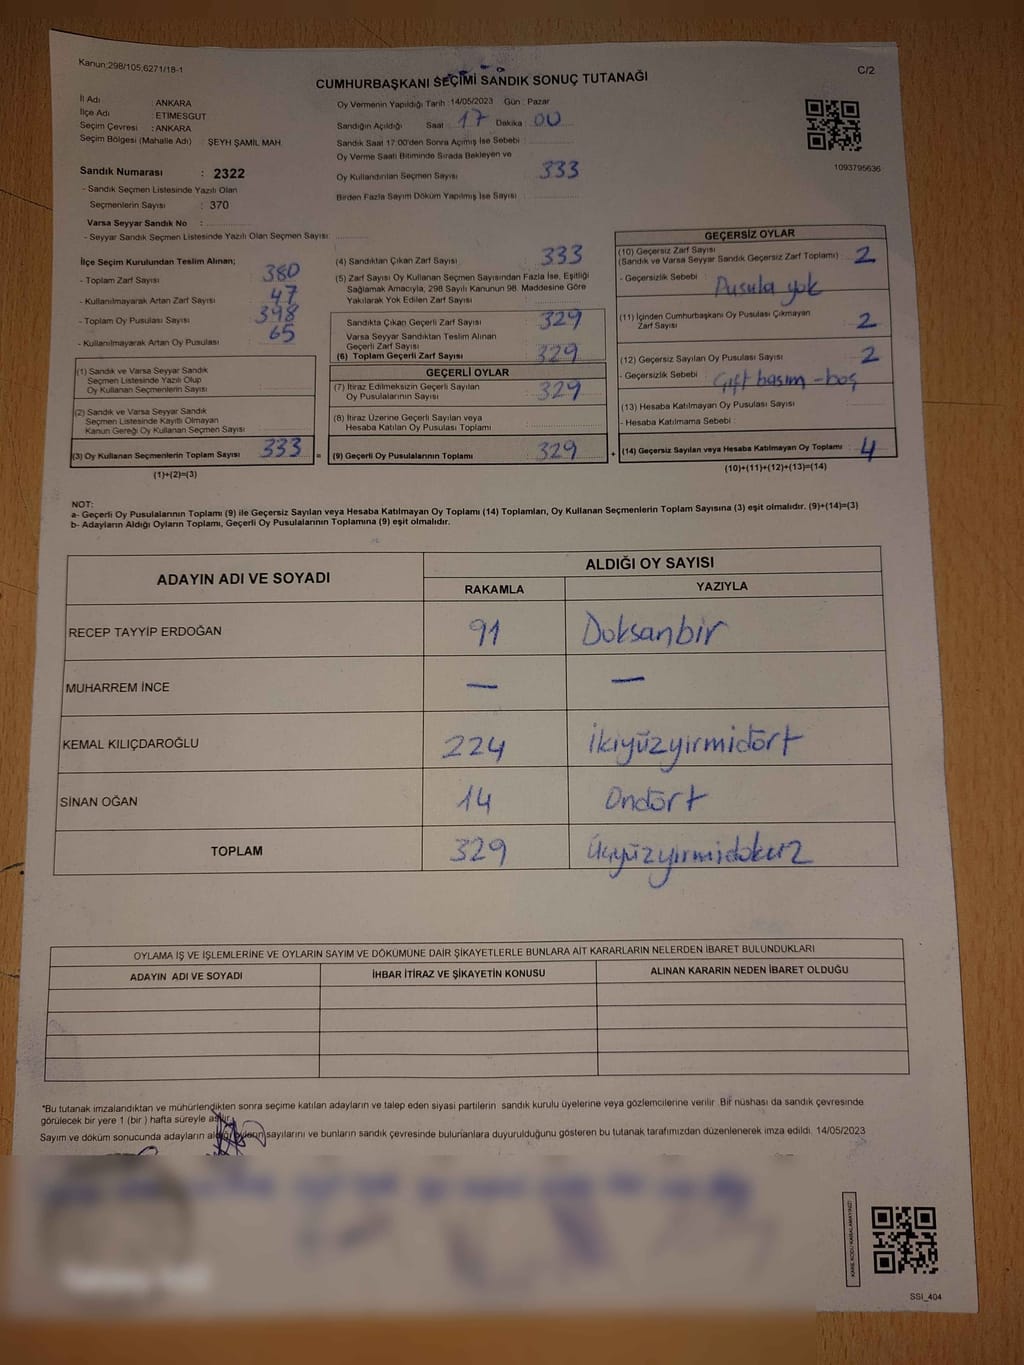 Kanun:298/105,6271/18-1
C/2
CUMHURBAŞKANI SEÇİMİ SANDIK SONUÇ TUTANAĞI
İl Adı : ANKARA
İlçe Adı : ETİMESGUT
Seçim Çevresi : ANKARA
Seçim Bölgesi (Mahalle Adı) : ŞEYH ŞAMİL MAH.
Sandık Numarası : 2322
- Sandık Seçmen Listesinde Yazılı Olan
Seçmenlerin Sayısı : 370
Varsa Seyyar Sandık No :
- Seyyar Sandık Seçmen Listesinde Yazılı Olan Seçmen Sayısı:
Oy Vermenin Yapıldığı Tarih :14/05/2023 Gün : Pazar
Sandığın Açıldığı Saat : 17 Dakika : 00
Sandık Saat 17:00'den Sonra Açımış İse Sebebi :
Oy Verme Saati Bitiminde Sırada Bekleyen ve
Oy Kullandırılan Seçmen Sayısı : 333
Birden Fazla Sayım Döküm Yapılmış İse Sayısı :
1093795636
İlçe Seçim Kurulundan Teslim Alınan;
- Toplam Zarf Sayısı : 380
- Kullanılmayarak Artan Zarf Sayısı : 47
- Toplam Oy Pusulası Sayısı : 398
- Kullanılmayarak Artan Oy Pusulası : 65
(1) Sandık ve Varsa Seyyar Sandık
Seçmen Listesinde Yazılı Olup
Oy Kullanan Seçmenlerin Sayısı :
(2) Sandık ve Varsa Seyyar Sandık
Seçmen Listesinde Kayıtlı Olmayan
Kanun Gereği Oy Kullanan Seçmen Sayısı :
(3) Oy Kullanan Seçmenlerin Toplam Sayısı : 333
(1)+(2)=(3)
(4) Sandıktan Çıkan Zarf Sayısı : 333
(5) Zarf Sayısı Oy Kullanan Seçmen Sayısından Fazla İse, Eşitliği
Sağlamak Amacıyla, 298 Sayılı Kanunun 98. Maddesine Göre
Yakılarak Yok Edilen Zarf Sayısı :
Sandıkta Çıkan Geçerli Zarf Sayısı : 329
Varsa Seyyar Sandıktan Teslim Alınan
Geçerli Zarf Sayısı :
(6) Toplam Geçerli Zarf Sayısı : 329
GEÇERLİ OYLAR
(7) İtiraz Edilmeksizin Geçerli Sayılan
Oy Pusulalarının Sayısı : 329
(8) İtiraz Üzerine Geçerli Sayılan veya
Hesaba Katılan Oy Pusulası Toplamı :
= (9) Geçerli Oy Pusulalarının Toplamı : 329
GEÇERSİZ OYLAR
(10) Geçersiz Zarf Sayısı
(Sandık ve Varsa Seyyar Sandık Geçersiz Zarf Toplamı) : 2
- Geçersizlik Sebebi : Pusula yok
(11) İçinden Cumhurbaşkanı Oy Pusulası Çıkmayan
Zarf Sayısı : 2
(12) Geçersiz Sayılan Oy Pusulası Sayısı : 2
- Geçersizlik Sebebi : Çift basım - boş
(13) Hesaba Katılmayan Oy Pusulası Sayısı :
- Hesaba Katılmama Sebebi :
+ (14) Geçersiz Sayılan veya Hesaba Katılmayan Oy Toplamı : 4
(10)+(11)+(12)+(13)=(14)
NOT:
a- Geçerli Oy Pusulalarının Toplamı (9) ile Geçersiz Sayılan veya Hesaba Katılmayan Oy Toplamı (14) Toplamları, Oy Kullanan Seçmenlerin Toplam Sayısına (3) eşit olmalıdır. (9)+(14)=(3)
b- Adayların Aldığı Oyların Toplamı, Geçerli Oy Pusulalarının Toplamına (9) eşit olmalıdır.
ADAYIN ADI VE SOYADI ALDIĞI OY SAYISI
RAKAMLA YAZIYLA
RECEP TAYYİP ERDOĞAN 91 Doksanbir
MUHARREM İNCE — —
KEMAL KILIÇDAROĞLU 224 İkiyüzyirmidört
SİNAN OĞAN 14 Ondört
TOPLAM 329 Üçyüzyirmidokuz
OYLAMA İŞ VE İŞLEMLERİNE VE OYLARIN SAYIM VE DÖKÜMÜNE DAİR ŞİKAYETLERLE BUNLARA AİT KARARLARIN NELERDEN İBARET BULUNDUKLARI
ADAYIN ADI VE SOYADI İHBAR İTİRAZ VE ŞİKAYETİN KONUSU ALINAN KARARIN NEDEN İBARET OLDUĞU
*Bu tutanak imzalandıktan ve mühürlendikten sonra seçime katılan adayların ve talep eden siyasi partilerin sandık kurulu üyelerine veya gözlemcilerine verilir. Bir nüshası da sandık çevresinde
görülecek bir yere 1 (bir ) hafta süreyle asılır.
Sayım ve döküm sonucunda adayların aldığı oyların sayılarını ve bunların sandık çevresinde bulunanlara duyurulduğunu gösteren bu tutanak tarafımızdan düzenlenerek imza edildi. 14/05/2023
SSI_404